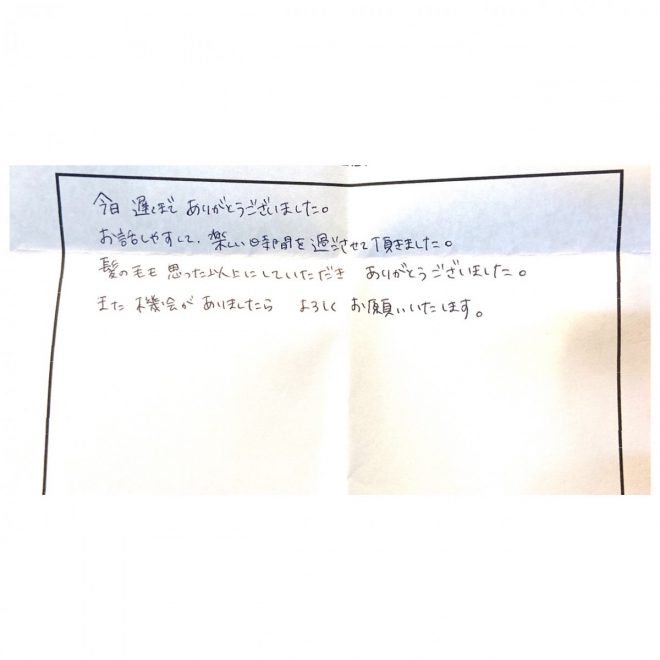 今日 遅くまで ありがとうございました。
お話しやすくて、楽しい時間を過ごさせて頂きました。
髪の毛も 思った以上にしていただき ありがとうございました。
また 機会が ありましたら よろしく お願いいたします。